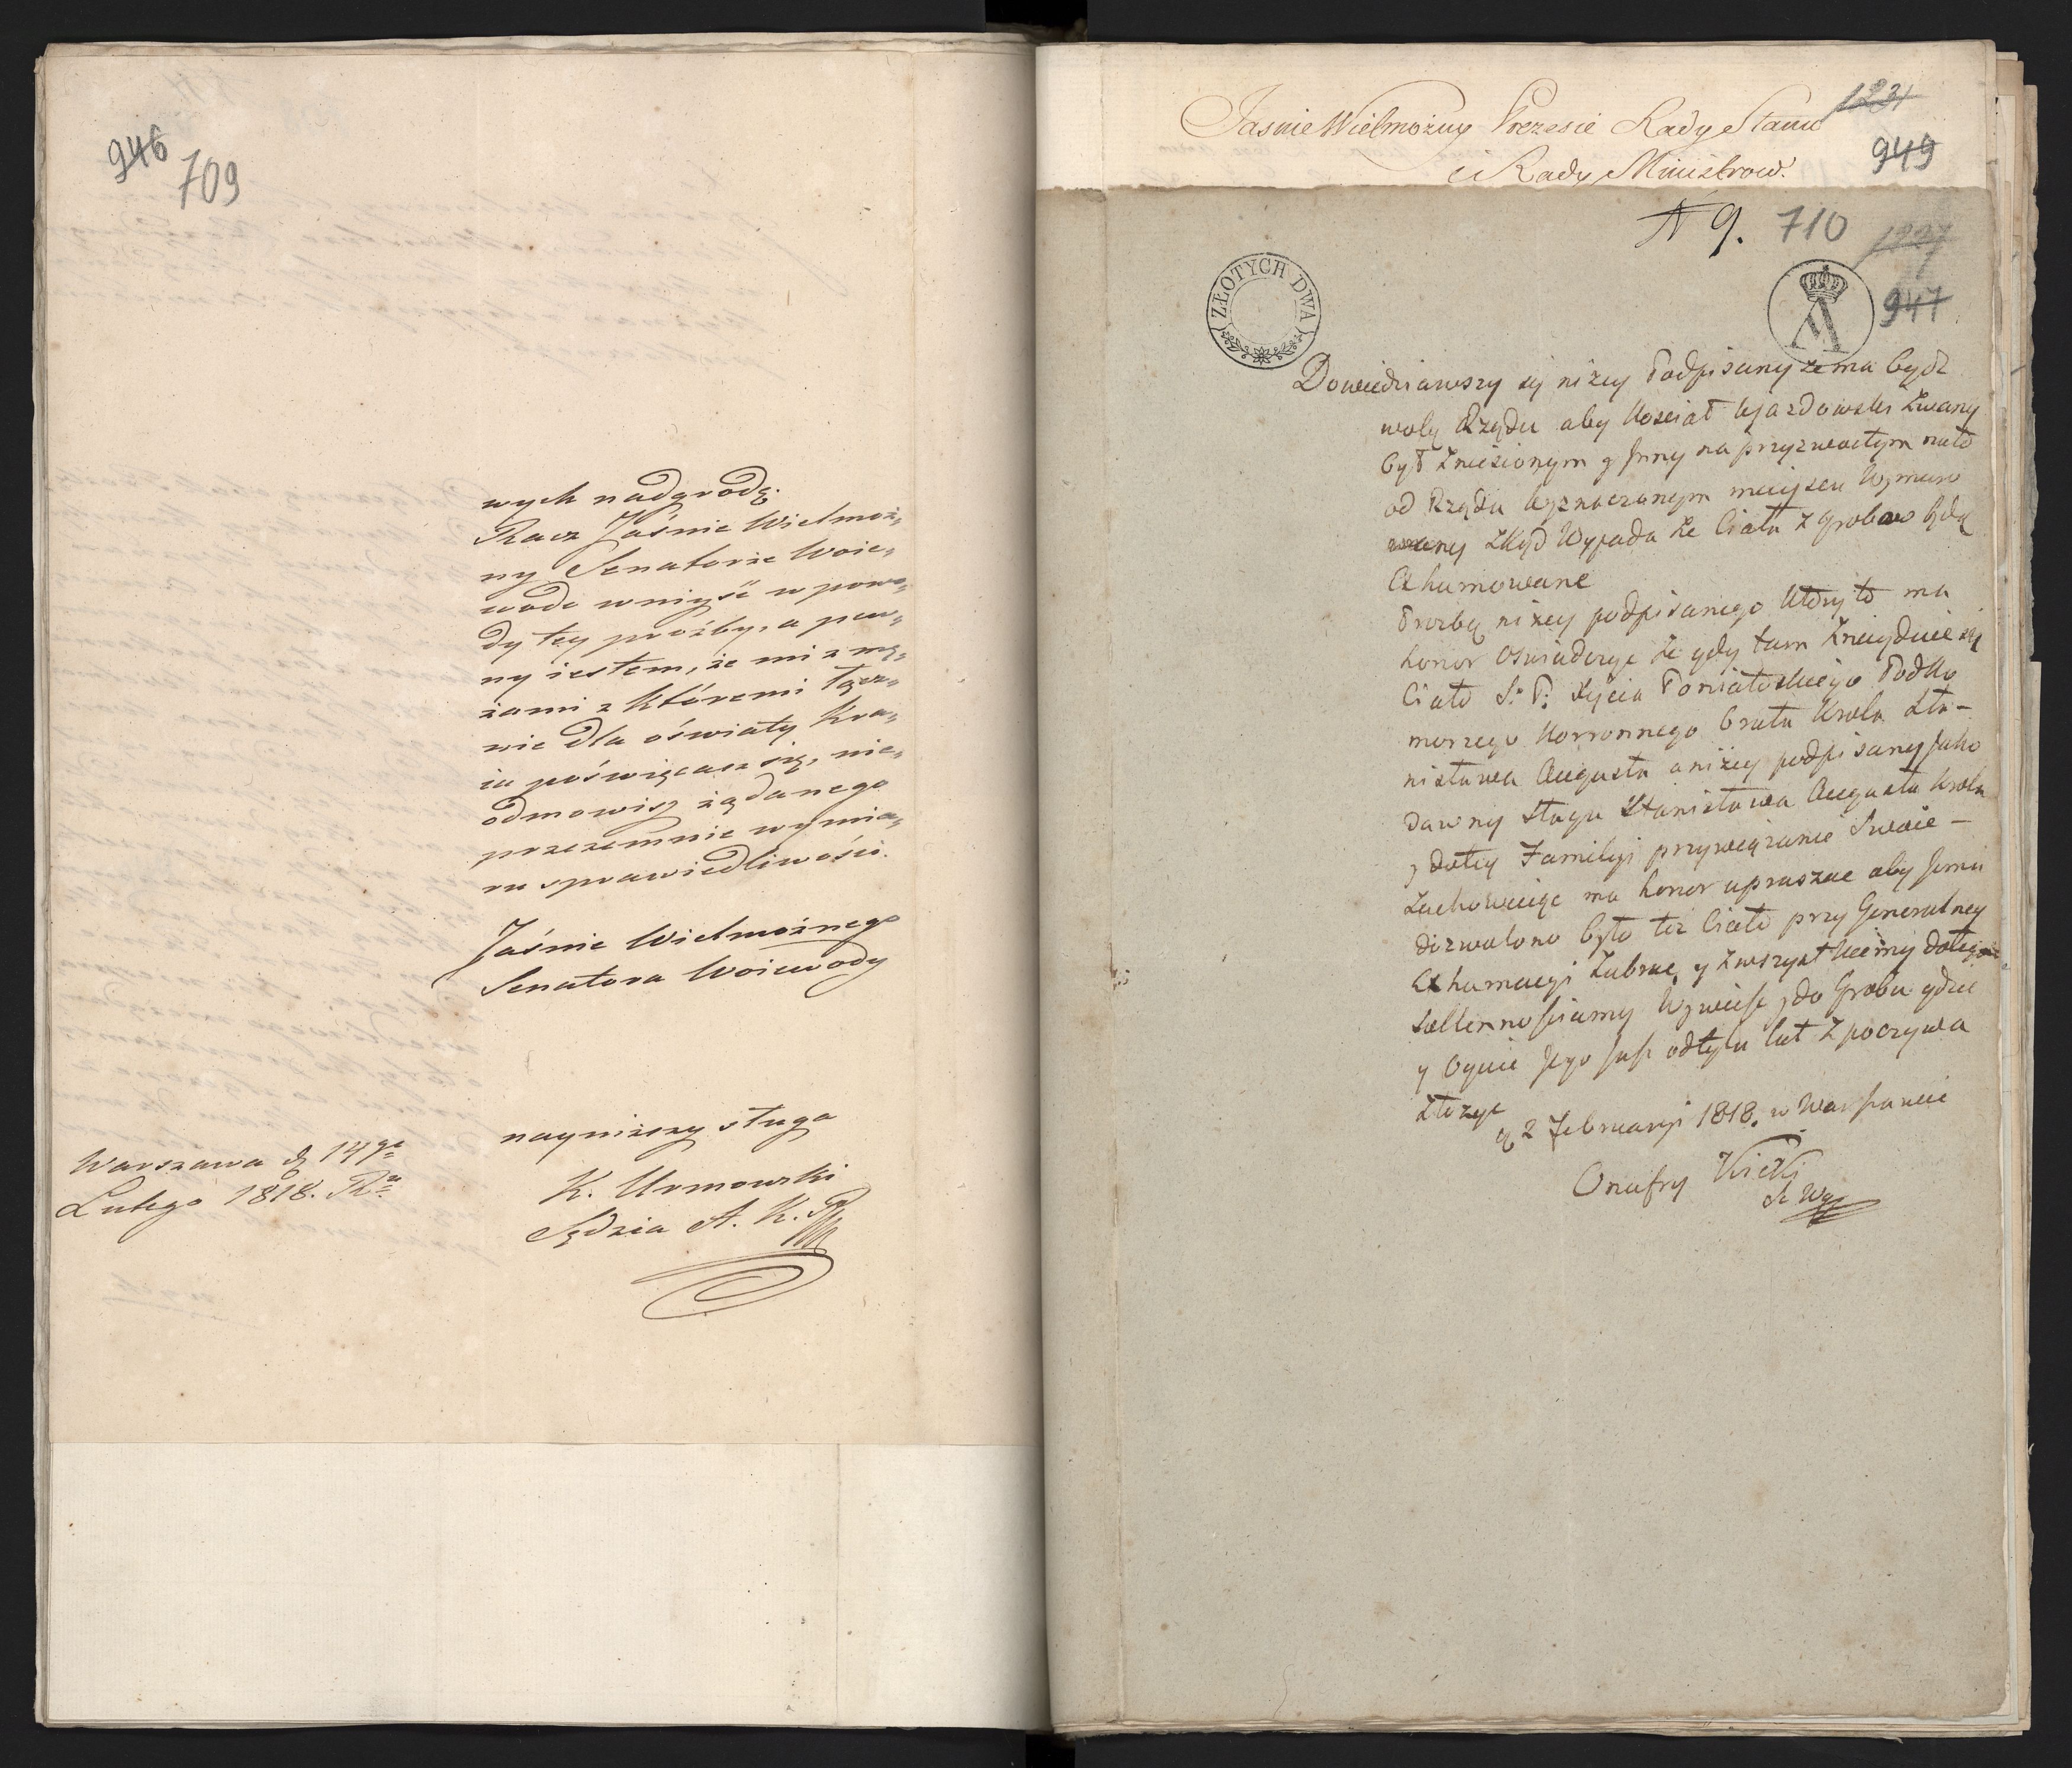 946
709
wych nadgrodę.
Racz Jaśnie Wielmoż„
ny Senatorze Woie„
wodo wniyść w powo„
dy tey prośby, a pew„
ny iestem, że mi z mę„
żami z któremi łącz„
nie dla oświaty Kra„
iu poświęcasz się, nie„
odmowisz żądanego
przezemnie wymia„
ru sprawiedliwości.
Jaśnie Wielmożnego
Senatora Woiewody
nayniższy sługa
K. Urmowski
Sędzia A. K. P.
Warszawa d. 14go
Lutego 1818. Ru
Jasnie Wielmożny Prezesie Rady Stanu
i Rady Ministrow.
1231
949
N 9. 710
1227
947
ZŁOTYCH DWA
A
Dowiedziawszy się niżey Podpisany że ma bydz
wolą Rządu aby Kosciał Ujazdowski Zwany
był Zniesionym y Inny na przyzwoitym na to
od Rządu Wyznaczonym mieyscu Wymuro
wany zkąd Wypada że Ciała z Grobow będą
Exhumowane
Prozbą niżey podpisanego który to ma
honor oświadczyć że gdy tam Znayduie się
Ciało S. P. Xięcia Poniatoskiego Podko
morzego Korronnego brata Krola Sta-
nisława Augusta a niżey podpisany Jako
dawny sługa Stanisława Augusta Krola
y całey Familyi przywiązanie Swoie-
Zachowuiąc ma honor upraszac aby Jemu
dozwolono było też Ciało przy Generalney
Exhumacyi Zabrac y Zwszystkiemy
Sollennosciamy Wywiesc y do Grobu gdzie
y Oyciec Jego Już od tylu lat Zpoczywa
Złożyc
d 2 Februaryi 1818. w Warszawie
Onufry Kicki